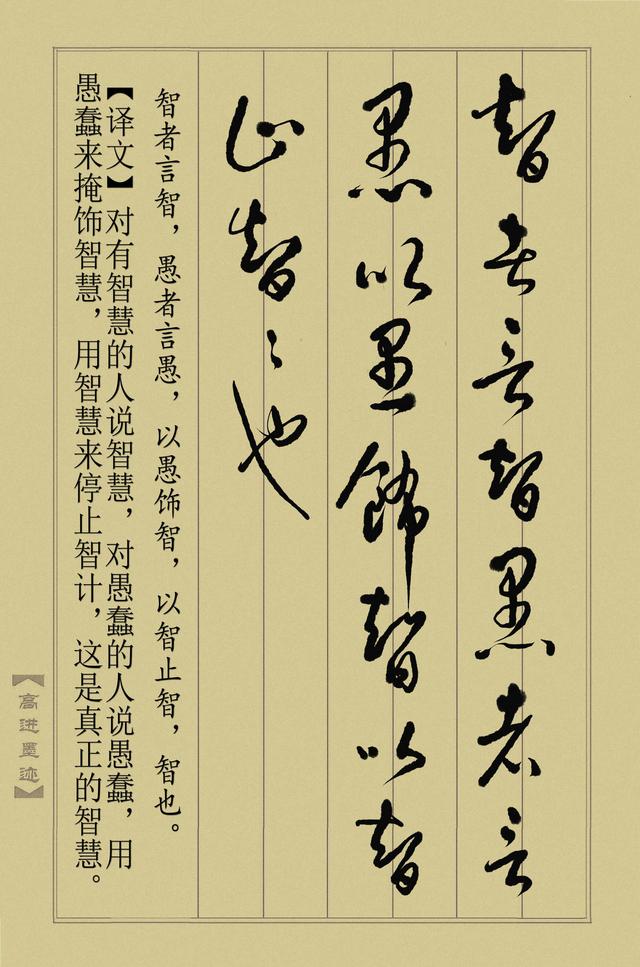 智者言智愚者言
愚以愚飾智以智
止智〻也
智者言智，愚者言愚，以愚饰智，以智止智，智也。
【译文】对有智慧的人说智慧，对愚蠢的人说愚蠢，用
愚蠢来掩饰智慧，用智慧来停止智计，这是真正的智慧。
【高进墨迹】